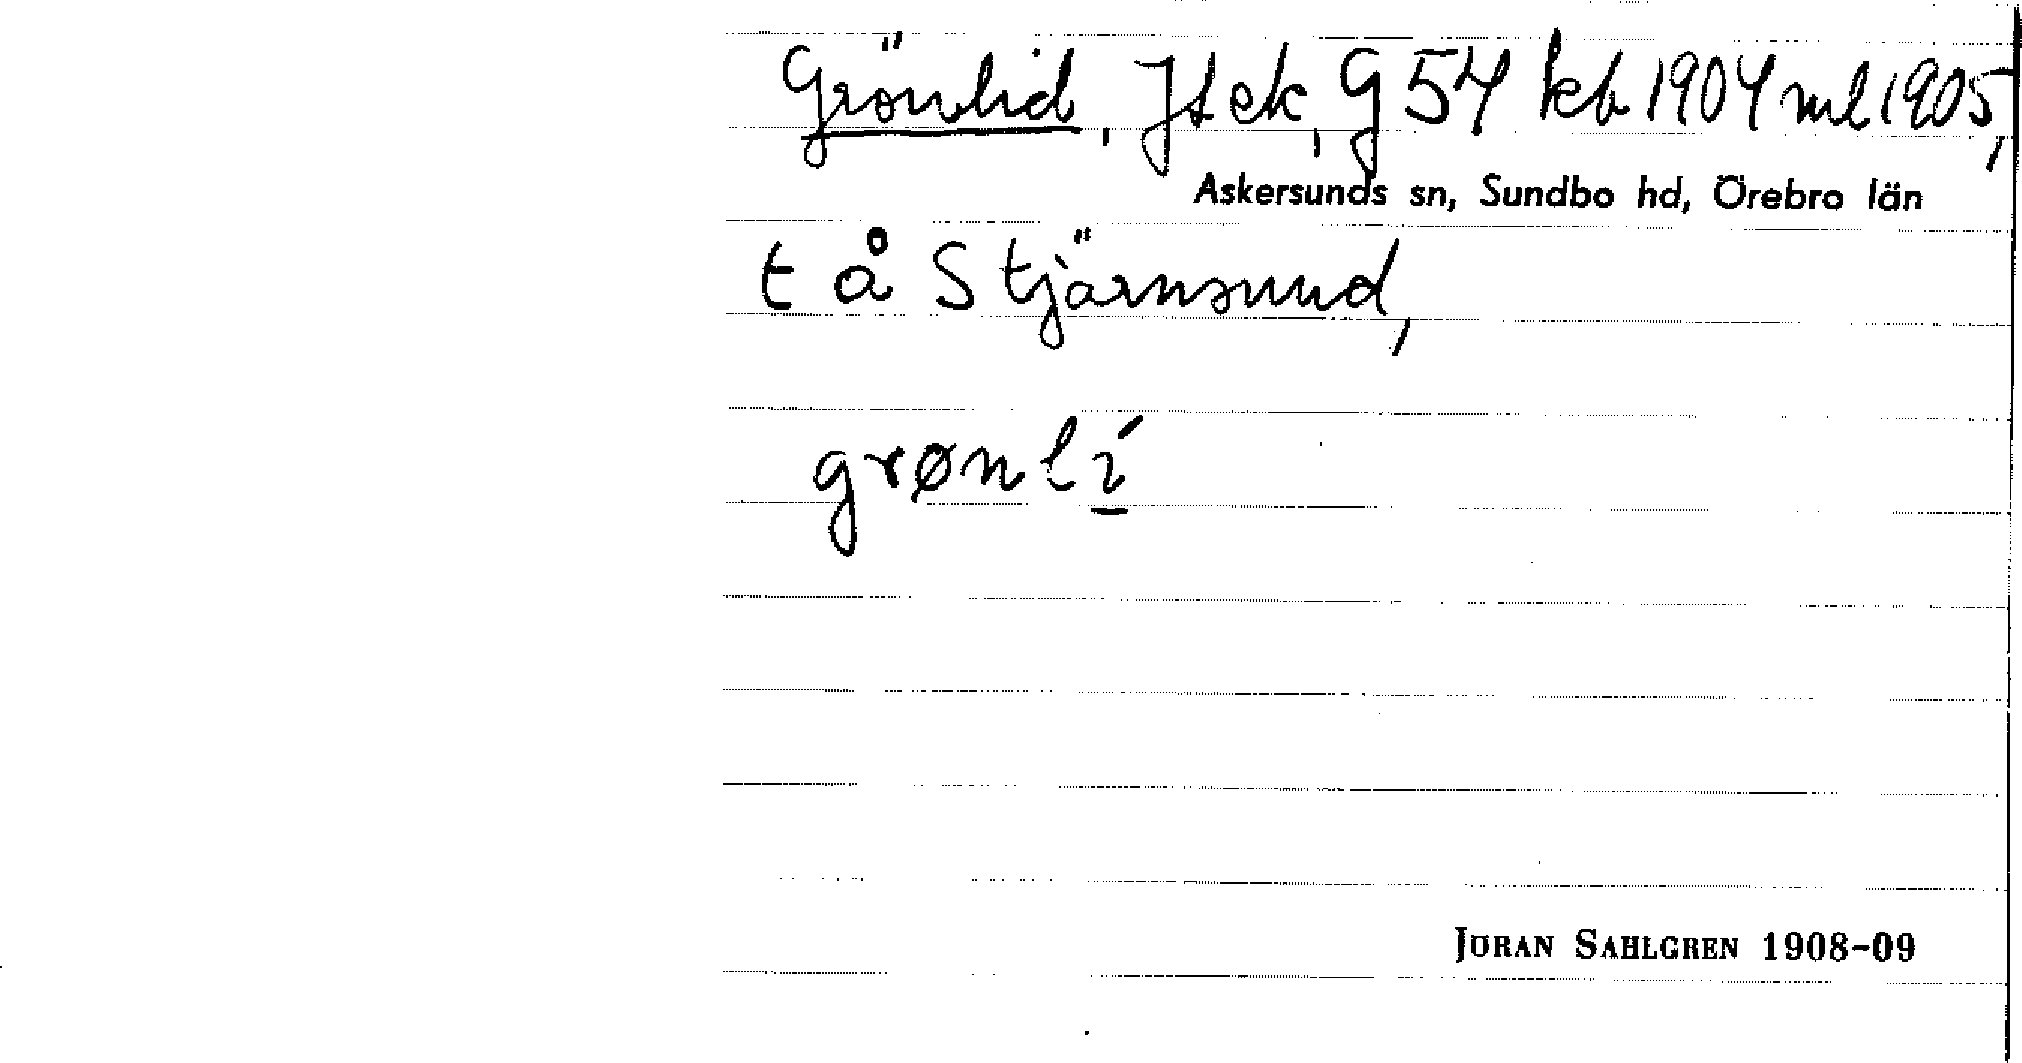 Grönlid, Jsek, G 54 kb 1904 ml 1905,
Askersunds sn, Sundbo hd, Örebro län
t å Stjärnsund,
grønlí
JÖRAN SAHLGREN 1908-09